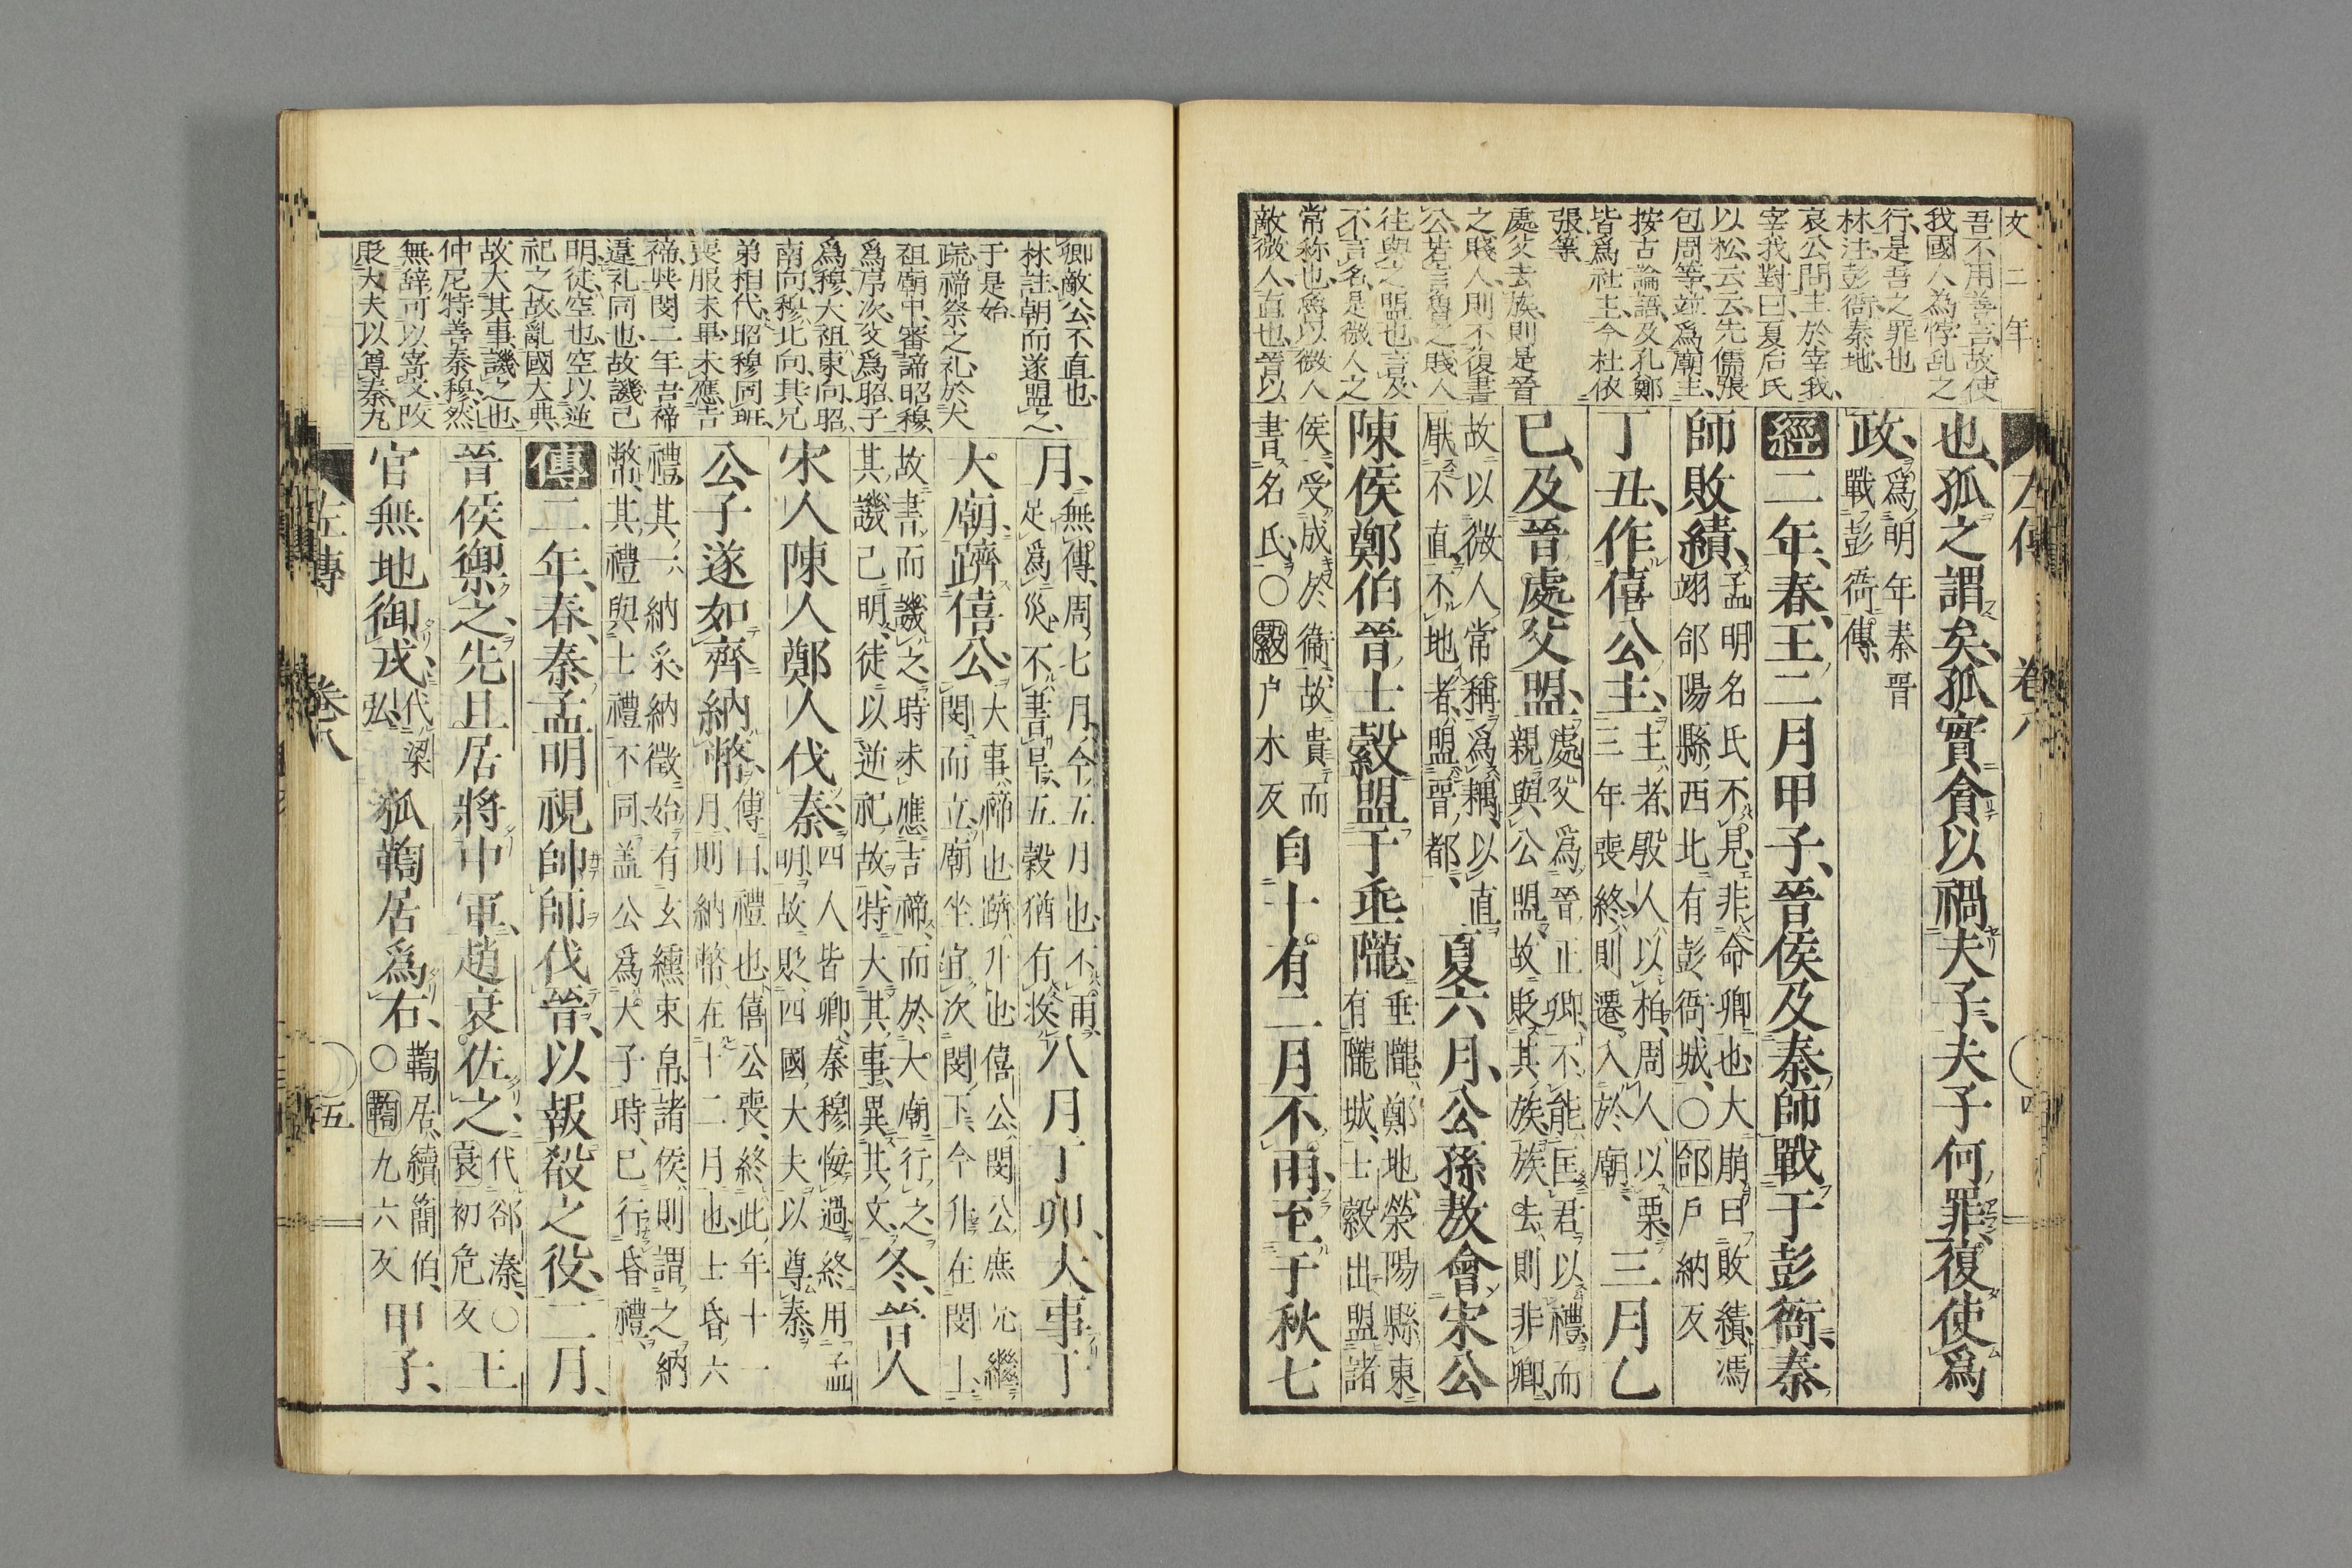 文二年
吾不用善言故使
我國人為悖乱之
行是吾之罪也
林注彭衙秦地
哀公問主於宰我
宰我對曰夏后氏
以松云云先儒張
包周等並爲廟主
按古論語及孔鄭
皆爲社主今杜依
張等
處父去族則是晉
之賤人則不復書
公若言魯之賤人
往與之盟也言及
不言名是微人之
常称也魯以微人
敵微人直也晉以
也孤之謂矣孤實貪以禍夫子夫子何罪復使爲
政爲明年秦晉
戰彭衙傳
經二年春王二月甲子晉侯及秦師戰于彭衙秦
師敗績孟明名氏不見非命卿也大崩曰敗績馮
翊郃陽縣西北有彭衙城○郃戶納反
丁丑作僖公主主者殷人以柏周人以栗
三年喪終則遷入於廟
三月乙
巳及晉處父盟處父爲晉正卿不能匡君以禮而
親與公盟故貶其族族去則非卿
故以微人常稱爲耦以直
厭不直不地者盟晉都
夏六月公孫敖會宋公
陳侯鄭伯晉士縠盟于垂隴垂隴鄭地滎陽縣東
有隴城士縠出盟諸
侯受成於衞故貴而
書名氏○縠户木反
自十有二月不雨至于秋七
左傳 卷八 四
卿敵公不直也
林註朝而遂盟之
于是始
疏禘祭之礼於大
祖廟中審諦昭穆
爲序次父爲昭子
爲穆大祖東向昭
南向穆北向其兄
弟相代昭穆同班
喪服未畢未應吉
禘與閔二年吉禘
違礼同也故譏已
明徒空也空以逆
祀之故亂國大典
故大其事譏之也
仲尼特善秦穆然
無辞可以寄文改
貶大夫以尊秦九
月無傳周七月今五月也不雨
足爲災不書旱五穀猶有收
八月丁卯大事于
大廟躋僖公大事禘也躋升也僖公閔公庶兄繼
閔而立廟坐宜次閔下今升在閔上
故書而譏之時未應吉禘而於大廟行之
其譏已明徒以逆祀故特大其事異其文
冬晉人
宋人陳人鄭人伐秦四人皆卿秦穆悔過終用孟
明故貶四國大夫以尊秦
公子遂如齊納幣傳曰禮也僖公喪終此年十一
月則納幣在十二月也士昏六
禮其一納采納徵始有玄纁束帛諸侯則謂之納
幣其禮與士禮不同蓋公爲大子時已行昏禮
傳二年春秦孟明視帥師伐晉以報殽之役二月
晉侯禦之先且居將中軍趙衰佐之代郤溱○
衰初危反
王
官無地御戎代梁
弘
狐鞫居爲右○鞫居續簡伯
鞫九六反
甲子
左傳 卷八 五